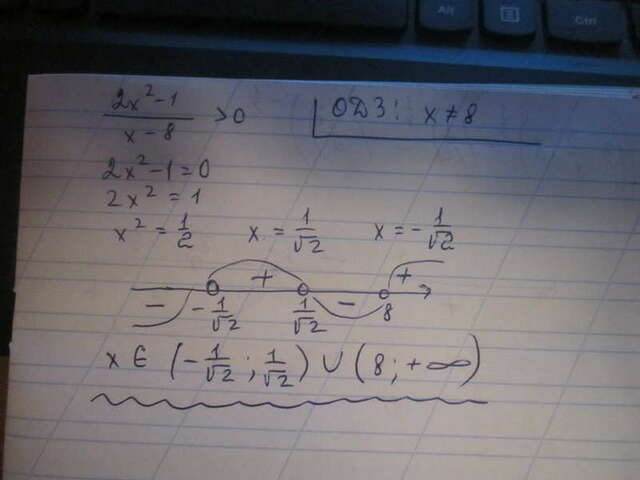 2x²-1 / x-8 > 0 ОДЗ: x ≠ 8
2x²-1=0
2x²=1
x² = 1/2 x = 1/√2 x = - 1/√2
- + - +
-1/√2 1/√2 8
x ∈ (-1/√2; 1/√2) ∪ (8; +∞)
Alt
Ctrl